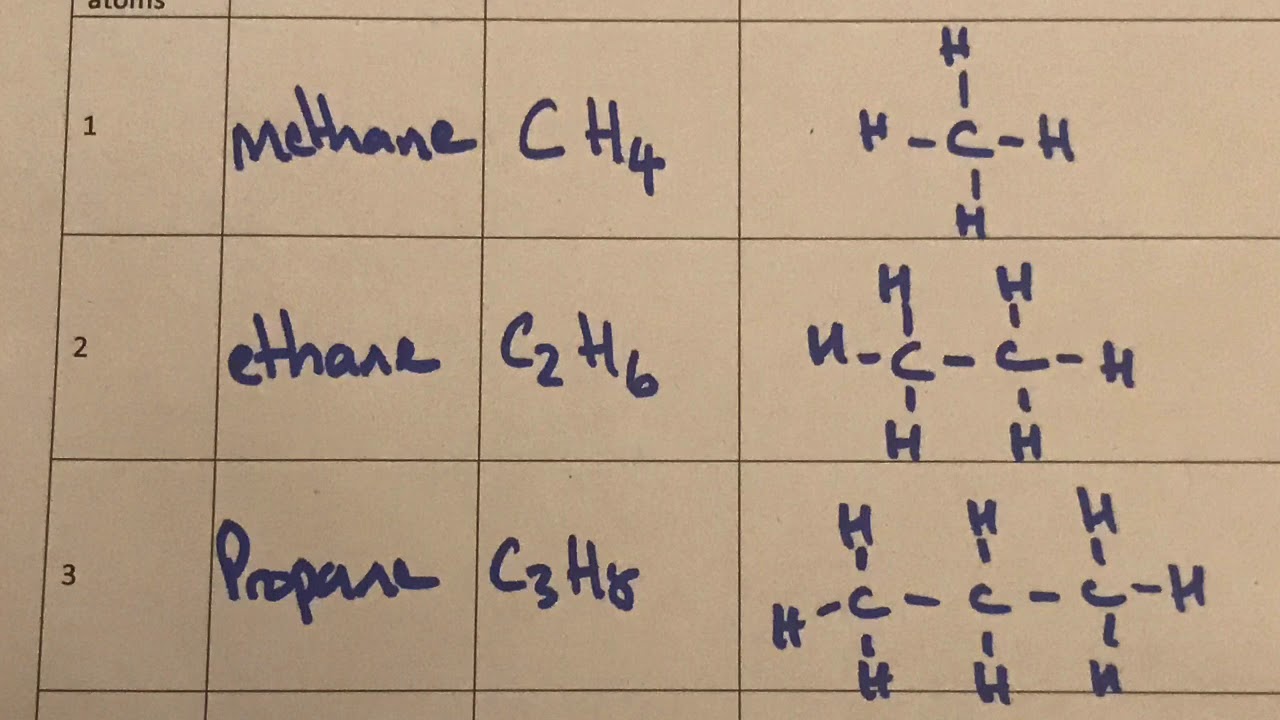 atoms
1 methane CH4
H
H - C - H
H
2 ethane C2H6
H H
H - C - C - H
H H
3 Propane C3H8
H H H
H - C - C - C - H
H H H